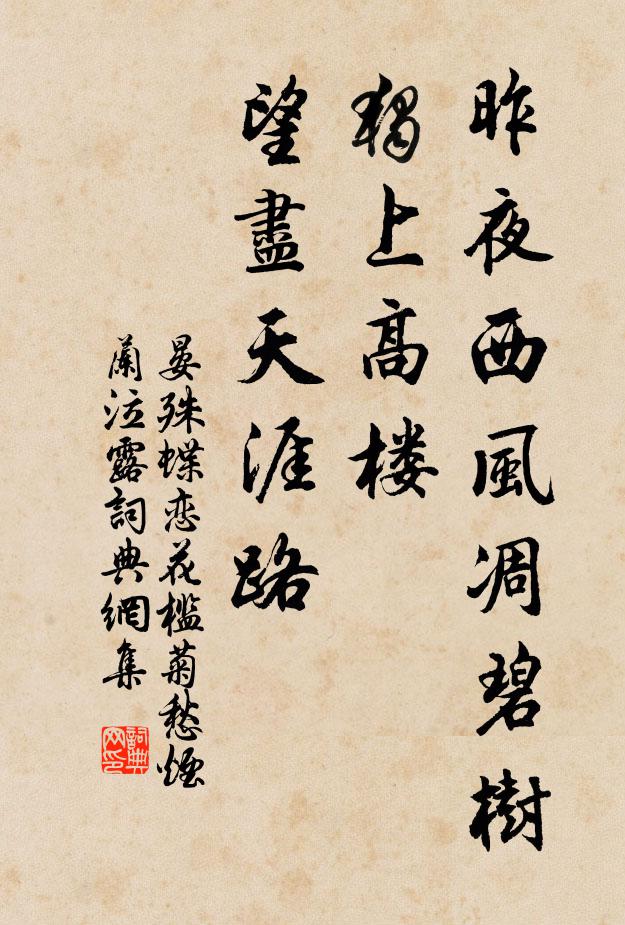 昨夜西風凋碧樹
獨上高楼
望盡天涯路
晏殊蝶恋花檻菊愁煙
蘭泣露詞典網集
詞典
网印